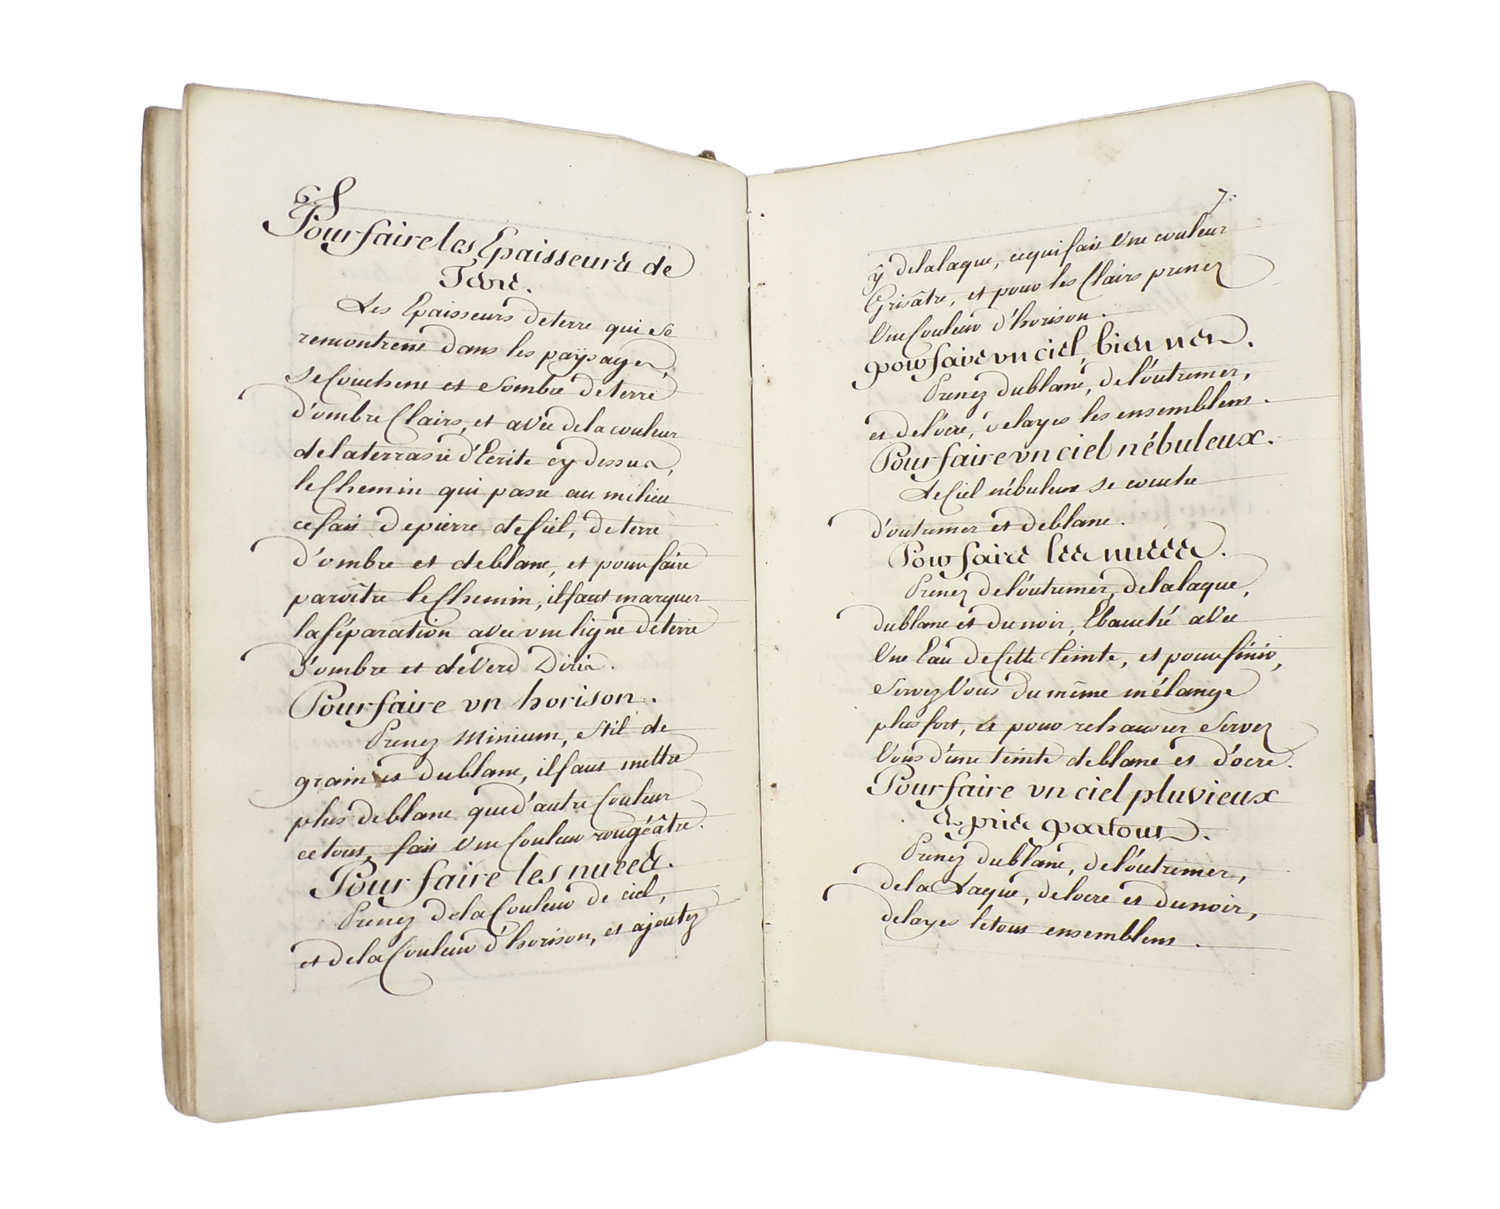 6
Pour faire les Epaisseurs de
Terre.
Les Epaisseurs de terre qui se
remontrent dans les paÿsages,
se Couchent et sombre de terre
d'ombre Clairs, et avec de la couleur
de la terrasse d'Ecrite cy dessus,
le Chemin qui passe au milieu
ce fait de pierre de fiel, de terre
d'ombre et de blanc, et pour faire
paroître le Chemin, il faut marquer
la séparation avec une ligne de terre
d'ombre et de Verd D'iris.
Pour faire un horison.
Prenez Minium, stil de
grain et du blanc, il faut mettre
plus de blanc que d'autre Couleur
ce tout, fait Une Couleur rougéâtre.
Pour faire les nuées.
Prenez de la Couleur de ciel,
et de la Couleur d'horison, et ajoutez
7.
ÿ de la laque, ce qui fait Une couleur
Grisâtre, et pour les Clairs prenez
Une Couleur d'horison.
pour faire un ciel, bien net.
Prenez du blanc, de l'outremer,
et de l'ocre, delayes les ensemblem.
Pour faire un ciel nébuleux.
Le Ciel nébuleux se couche
d'outremer et de blanc.
Pour faire les nuées.
Prenez de l'outremer, de la laque,
du blanc et du noir, Ebauché avec
Une Eau de Cette teinte, et pour finir,
Servez Vous du même mélange
plus fort, et pour rehausser Servez
Vous d'une teinte de blanc et d'ocre.
Pour faire un ciel pluvieux
& pris partout.
Prenez du blanc, de l'outremer,
de la Laque, de locre et du noir,
delayes le tout ensemblem.